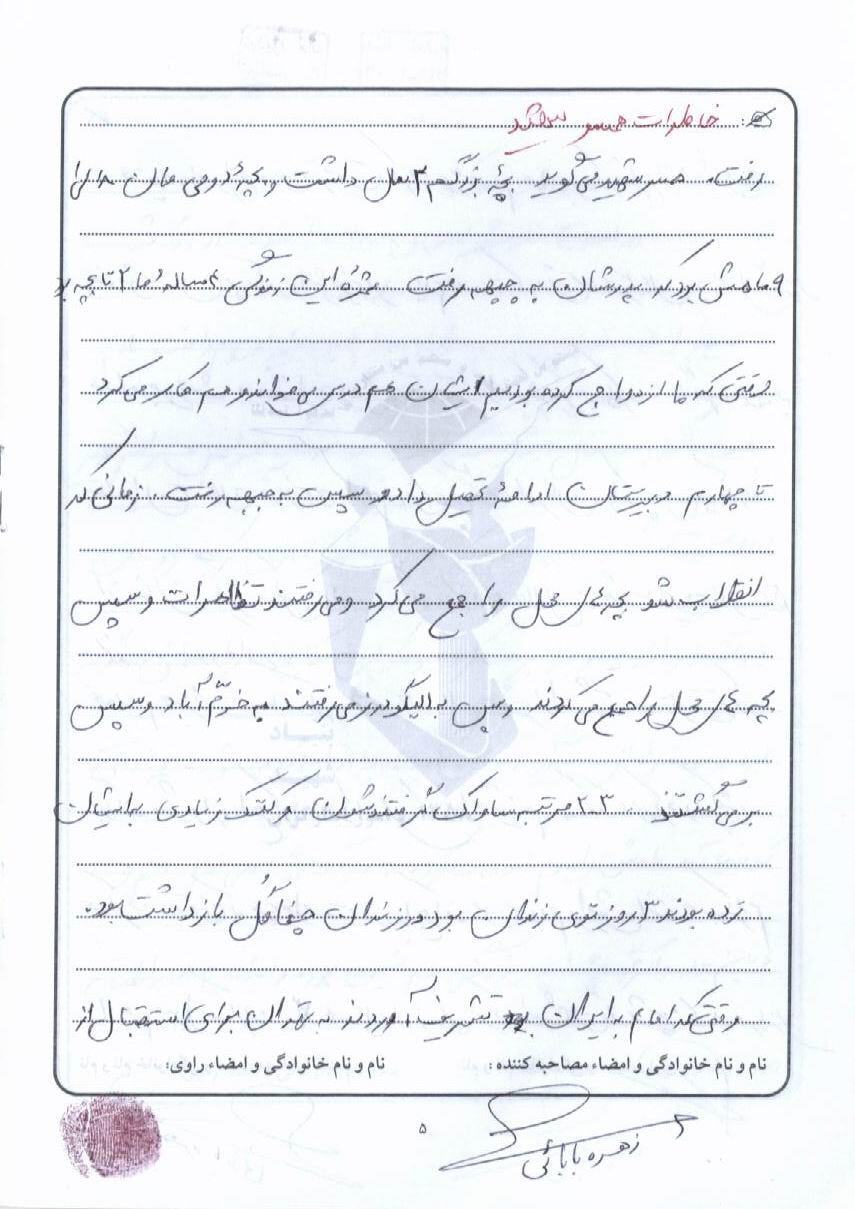 خاطرات همسر شهید
رفت. همسر شهید می گوید بچۀ بزرگم ۳ سال داشت و بچۀ دومی مان ۸ الی
۹ ماهش بود که پدرشان به جبهه رفت ثمرۀ این زندگی ۴ ساله ما ۲ تا بچه بود
وقتی که ما ازدواج کرده بودیم ایشان هم درس می خواند و هم کار می کرد
تا چهارم دبیرستان ادامۀ تحصیل داد و سپس به جبهه رفت. زمانی که
انقلاب شد بچه های محل را جمع می کرد و می رفتند تظاهرات و سپس
بچه های محل را جمع می کردند و پس به الیگودرز می رفتند به خرّم آباد و سپس
برمی گشتند. ۳-۲ مرتبه ساواک گرفتندشان و کتک زیادی به ایشان
زده بودند ۳ روز توی زندان بود در زندان بازداشت بود.
وقتی که امام به ایران تشریف آوردند به تهران برای استقبال از
نام و نام خانوادگی و امضاء مصاحبه کننده : نام و نام خانوادگی و امضاء راوی:
۵
زهره بابائی